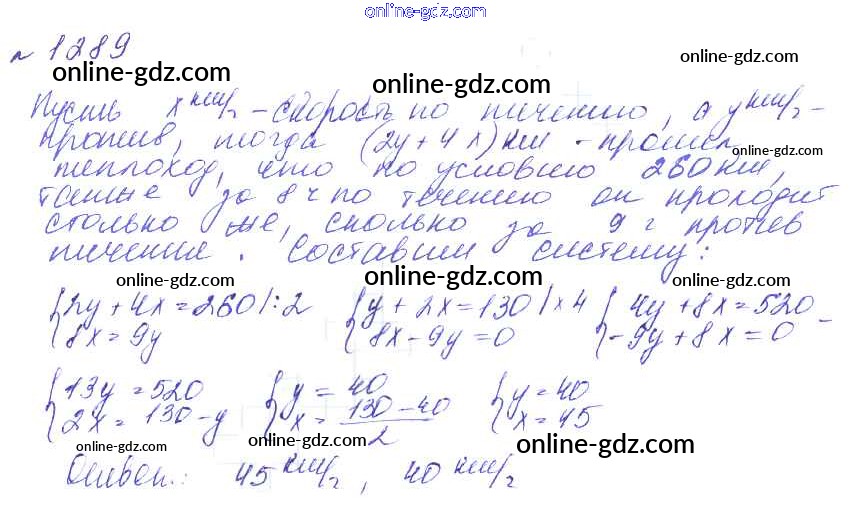 online-gdz.com
№ 1289
online-gdz.com online-gdz.com online-gdz.com
Пусть x км/ч - скорость по течению, а y км/ч -
против, тогда (2y + 4x) км - прошел
online-gdz.com
теплоход, что по условию 260 км,
также за 8 ч по течению он проходит
столько же, сколько за 9 ч против
течения. Составим систему:
online-gdz.com online-gdz.com online-gdz.com
{2y + 4x = 260 |:2 {y + 2x = 130 | x 4 {4y + 8x = 520
{8x = 9y {8x - 9y = 0 {-9y + 8x = 0 -
{13y = 520 {y = 40 {y = 40
{2x = 130 - y {x = (130 - 40)/2 {x = 45
online-gdz.com online-gdz.com online-gdz.com
Ответ: 45 км/ч, 40 км/ч